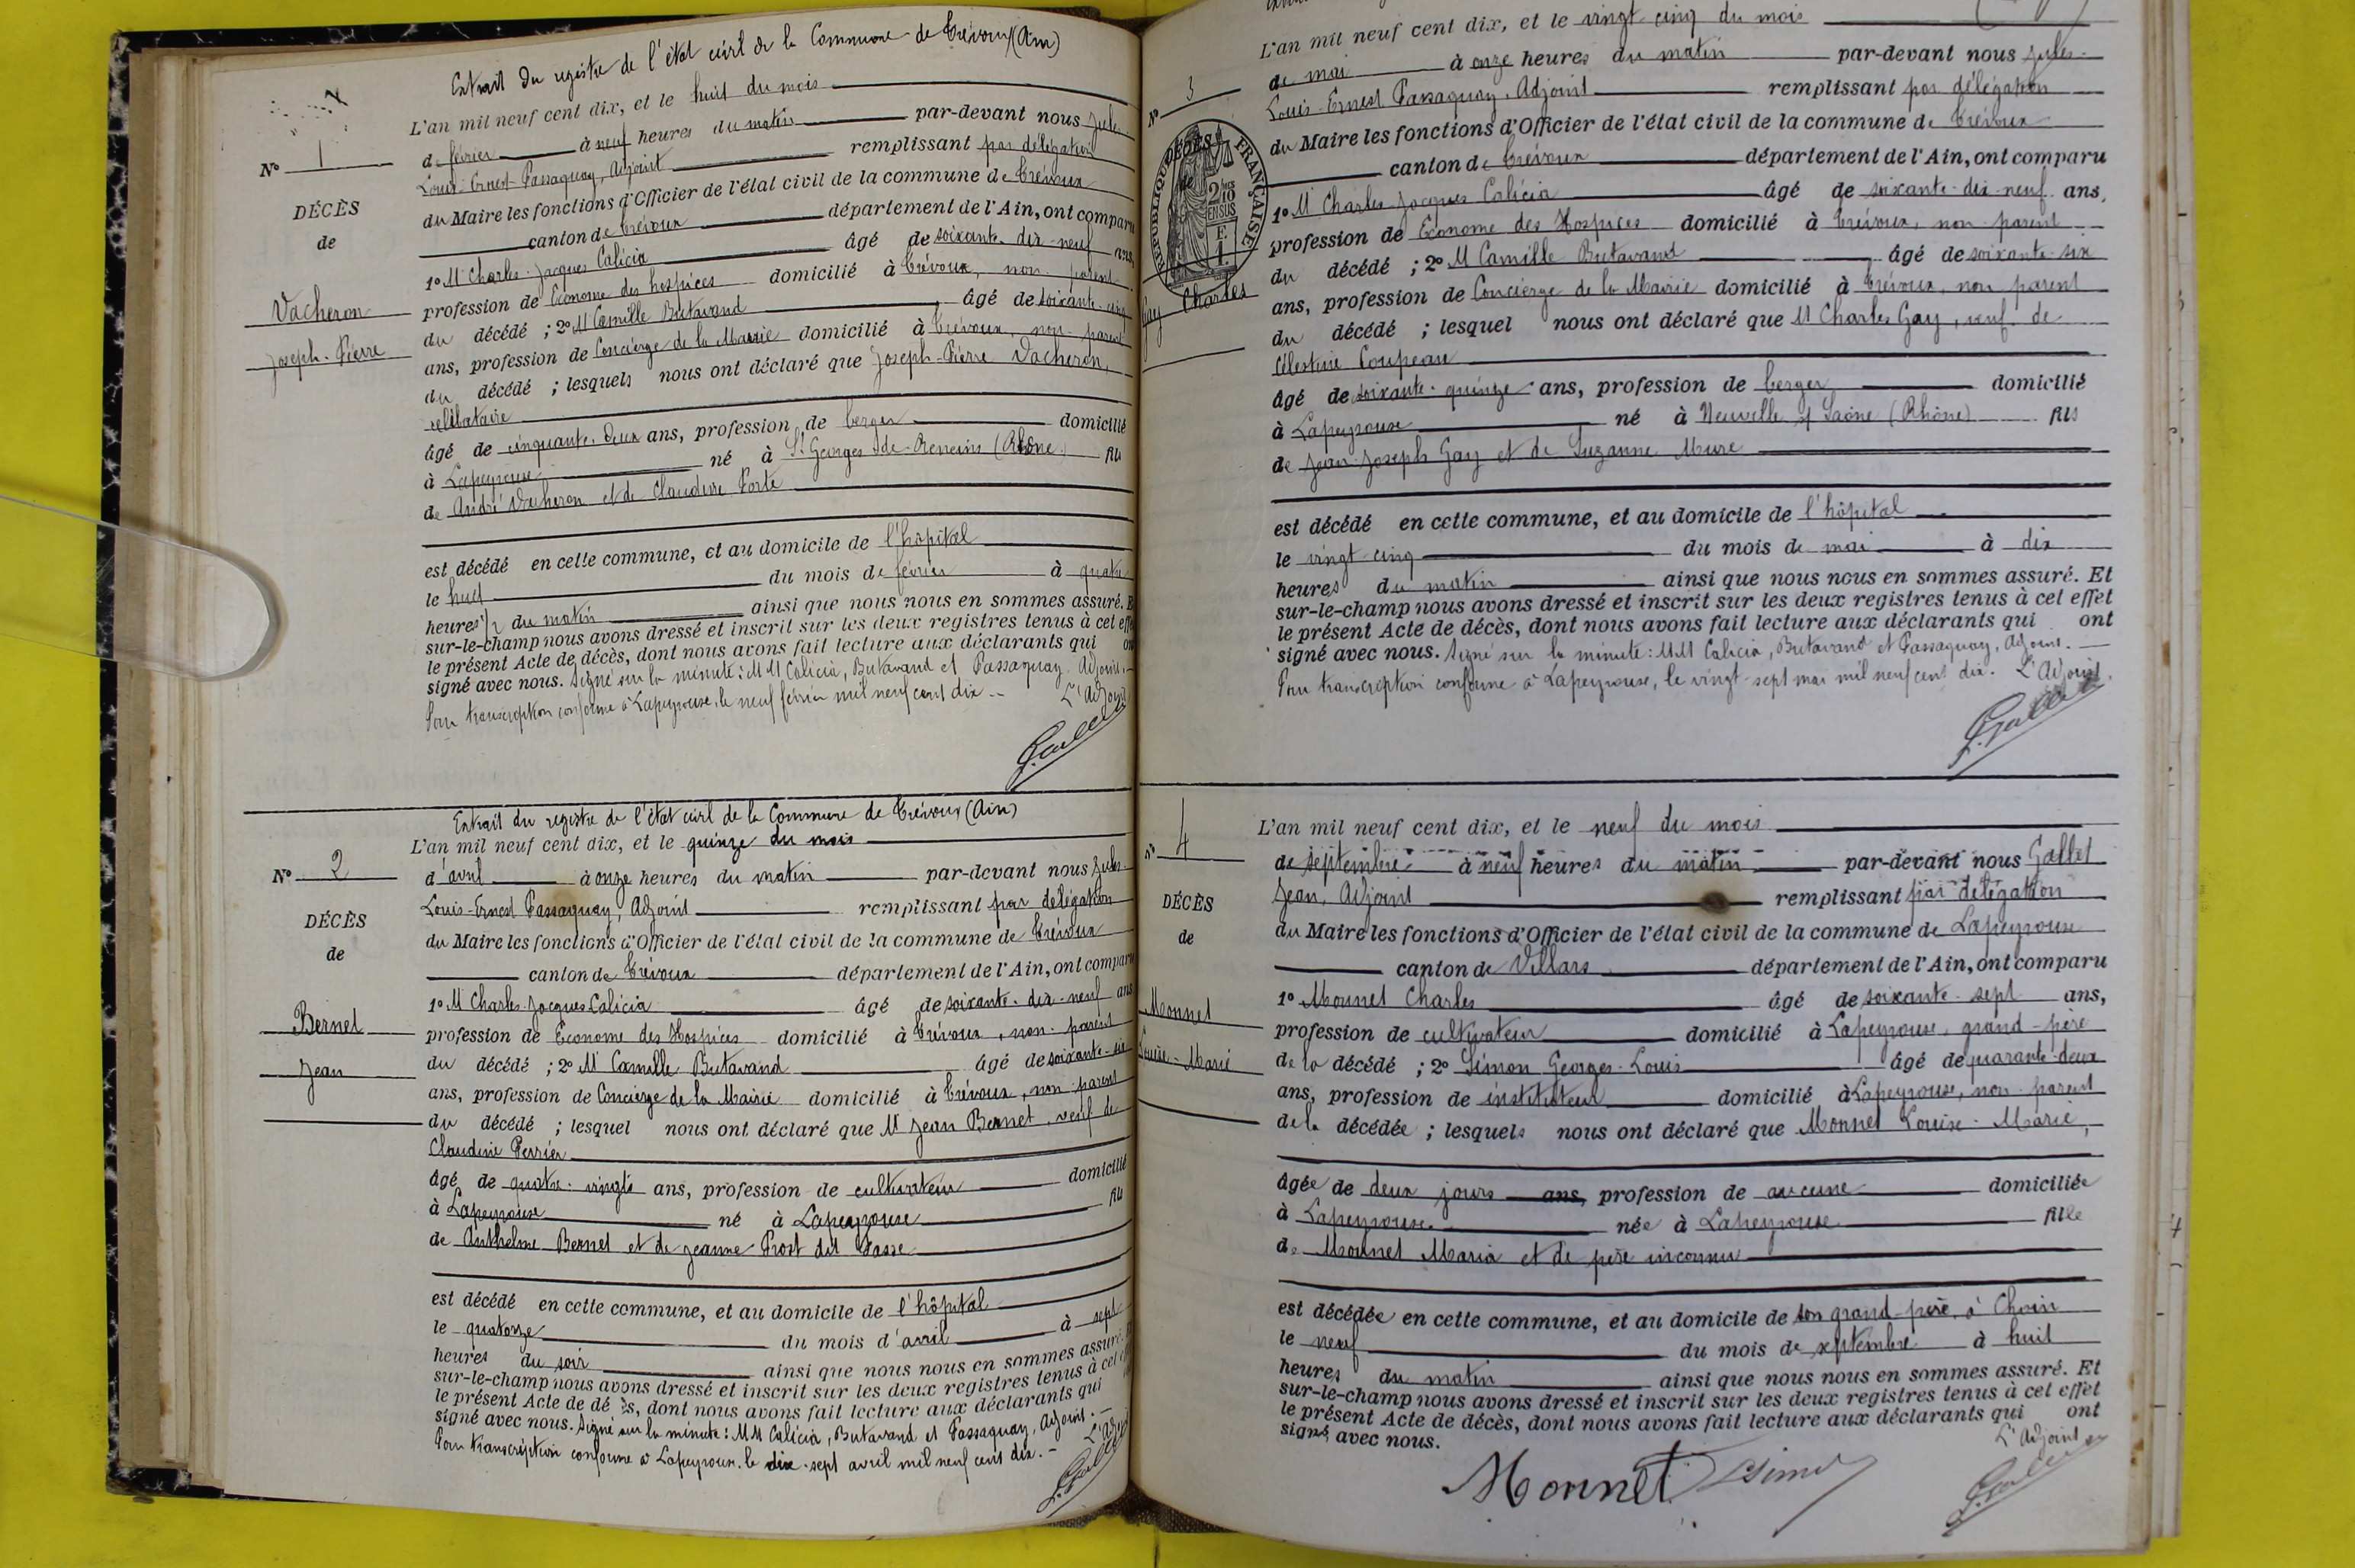 Extrait du registre de l'état civil de la Commune de Trévoux (Ain)
L'an mil neuf cent dix, et le huit du mois
Nº 1
de février à neuf heures du matin par-devant nous Jules
Louis-Ernest Passaquay, Adjoint remplissant par délégation
du Maire les fonctions d'Officier de l'état civil de la commune de Trévoux
canton de Trévoux département de l'Ain, ont comparu
DÉCÈS
de
Vacheron
Joseph-Pierre
1º M Charles-Jacques Calicia âgé de soixante-dix-neuf ans,
profession de Econome des hospices domicilié à Trévoux, non parent
du décédé ; 2º M Camille Butavand âgé de soixante-cinq
ans, profession de Concierge de la Mairie domicilié à Trévoux, non parent
du décédé ; lesquels nous ont déclaré que Joseph-Pierre Vacheron,
célibataire
âgé de cinquante-deux ans, profession de berger domicilié
à Lapeyrouse né à St Georges-de-Reneins (Rhône) fils
de André Vacheron et de Claudine Porte
est décédé en cette commune, et au domicile de l'hôpital
le huit du mois de février à quatre
heures ½ du matin ainsi que nous nous en sommes assuré. E
sur-le-champ nous avons dressé et inscrit sur les deux registres tenus à cet effe
le présent Acte de décès, dont nous avons fait lecture aux déclarants qui on
signé avec nous. Signé sur la minute : MM Calicia, Butavand et Passaquay, Adjoint.
Pour transcription conforme à Lapeyrouse, le neuf février mil neuf cent dix. L'Adjoint
Extrait du registre de l'état civil de la Commune de Trévoux (Ain)
L'an mil neuf cent dix, et le quinze du mois
Nº 2
d'avril à onze heures du matin par-devant nous Jules
Louis-Ernest Passaquay, Adjoint remplissant par délégation
du Maire les fonctions d'Officier de l'état civil de la commune de Trévoux
canton de Trévoux département de l'Ain, ont comparu
DÉCÈS
de
Bernet
Jean
1º M Charles-Jacques Calicia âgé de soixante-dix-neuf ans
profession de Econome des Hospices domicilié à Trévoux, non parent
du décédé ; 2º M Camille Butavand âgé de soixante-six
ans, profession de Concierge de la Mairie domicilié à Trévoux, non parent
du décédé ; lesquel nous ont déclaré que M Jean Bernet, veuf de
Claudine Perrier
âgé de quatre-vingts ans, profession de cultivateur domicilié
à Lapeyrouse né à Lapeyrouse fils
de Anthelme Bernet et de Jeanne Prost dit Passe
est décédé en cette commune, et au domicile de l'hôpital
le quatorze du mois d'avril à sept
heures du soir ainsi que nous nous en sommes assuré.
sur-le-champ nous avons dressé et inscrit sur les deux registres tenus à cet
le présent Acte de dé ès, dont nous avons fait lecture aux déclarants qui
signé avec nous. Signé sur la minute : MM Calicia, Butavand et Passaquay, Adjoint.
Pour transcription conforme à Lapeyrouse, le dix-sept avril mil neuf cent dix.
L'an mil neuf cent dix, et le vingt-cinq du mois
Nº 3
de mai à onze heures du matin par-devant nous Jules-
Louis-Ernest Passaquay, Adjoint remplissant par délégation
du Maire les fonctions d'Officier de l'état civil de la commune de Trévoux
canton de Trévoux département de l'Ain, ont comparu
DÉCÈS
de
RÉPUBLIQUE FRANÇAISE
2/10 EN SUS
F.
1
Gay Charles
1º M Charles-Jacques Calicia âgé de soixante-dix-neuf ans,
profession de Econome des Hospices domicilié à Trévoux, non parent
du décédé ; 2º M Camille Butavand âgé de soixante-six
ans, profession de Concierge de la Mairie domicilié à Trévoux, non parent
du décédé ; lesquel nous ont déclaré que M Charles Gay, veuf de
Célestine Coupeau
âgé de soixante-quinze ans, profession de berger domicilié
à Lapeyrouse né à Neuville s/ Saône (Rhône) fils
de Jean-Joseph Gay et de Suzanne Mure
est décédé en cette commune, et au domicile de l'hôpital
le vingt-cinq du mois de mai à dix
heures du matin ainsi que nous nous en sommes assuré. Et
sur-le-champ nous avons dressé et inscrit sur les deux registres tenus à cet effet
le présent Acte de décès, dont nous avons fait lecture aux déclarants qui ont
signé avec nous. Signé sur la minute : MM Calicia, Butavand et Passaquay, Adjoint.
Pour transcription conforme à Lapeyrouse, le vingt-sept mai mil neuf cent dix. L'Adjoint.
L'an mil neuf cent dix, et le neuf du mois
Nº 4
de septembre à neuf heures du matin par-devant nous Gallet
Jean, Adjoint remplissant par délégation
du Maire les fonctions d'Officier de l'état civil de la commune de Lapeyrouse
canton de Villars département de l'Ain, ont comparu
DÉCÈS
de
Monnet
Louise-Marie
1º Monnet Charles âgé de soixante-sept ans,
profession de cultivateur domicilié à Lapeyrouse, grand-père
de la décédé ; 2º Simon Georges-Louis âgé de quarante-deux
ans, profession de instituteur domicilié à Lapeyrouse, non parent
de la décédée ; lesquels nous ont déclaré que Monnet Louise-Marie,
âgée de deux jours ans, profession de aucune domiciliée
à Lapeyrouse née à Lapeyrouse fille
de Monnet Maria et de père inconnu
est décédée en cette commune, et au domicile de son grand-père, à Choin
le neuf du mois de septembre à huit
heures du matin ainsi que nous nous en sommes assuré. Et
sur-le-champ nous avons dressé et inscrit sur les deux registres tenus à cet effet
le présent Acte de décès, dont nous avons fait lecture aux déclarants qui ont
signé avec nous.
L'Adjoint
Monnet Simon